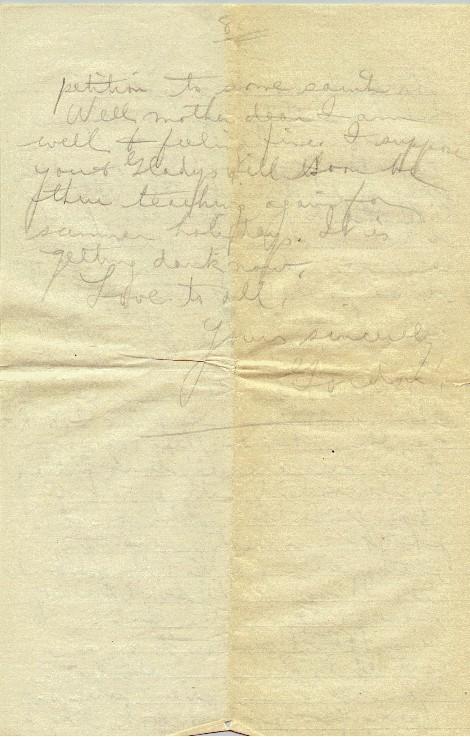 8
petition to some saint
Well mother dear I am
well & feeling fine. I suppose
you & Gladys will soon be
thru teaching again for
summer holidays. It is
getting dark now.
Love to all,
Yours sincerely
"Gordon".